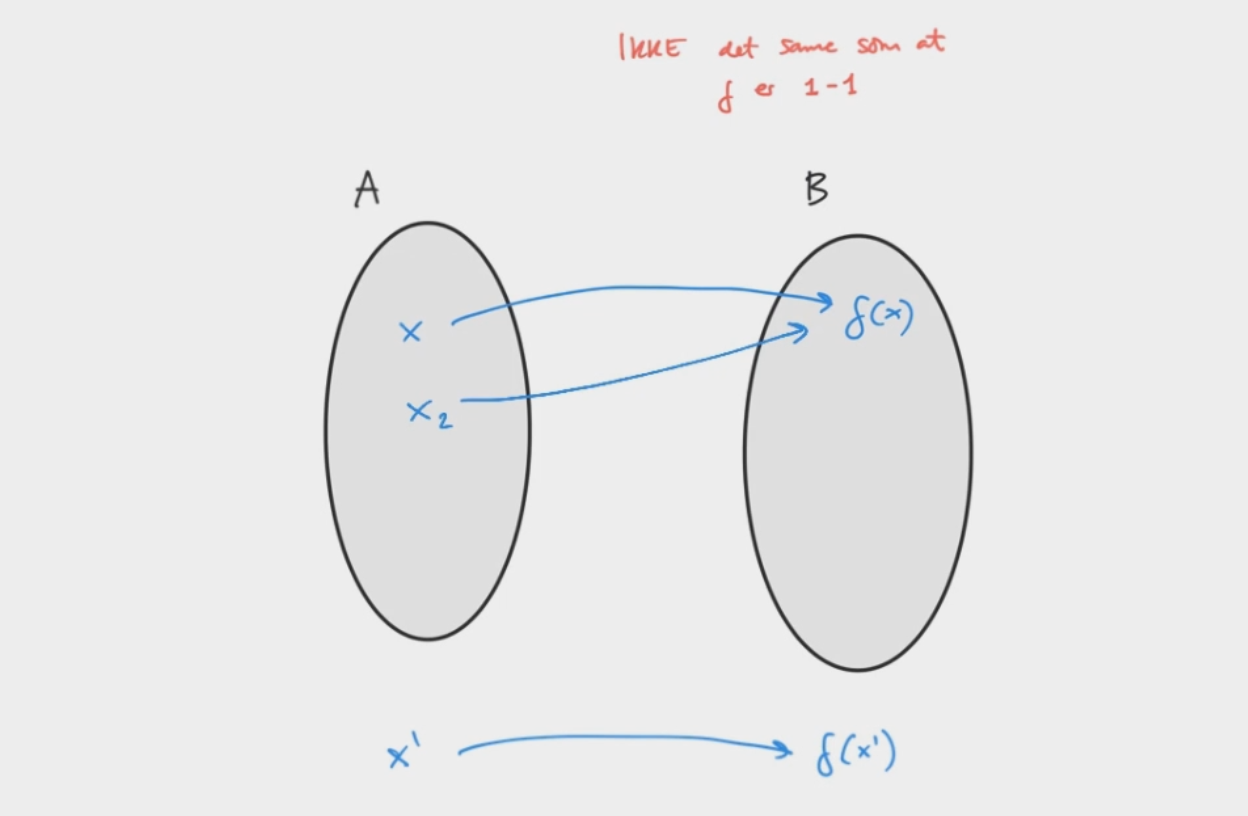 IKKE det same som at
f er 1-1
A B
x f(x)
x₂
x' f(x')